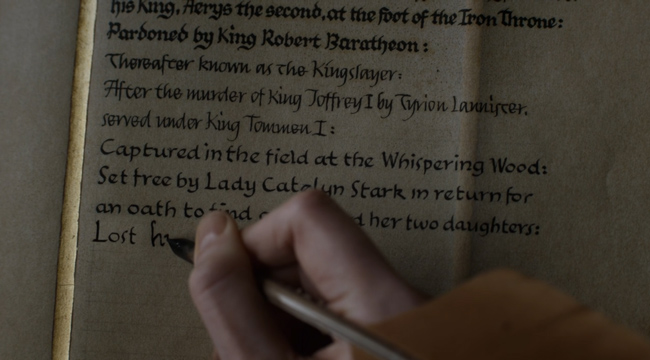 his King, Aerys the second, at the foot of the Iron Throne:
Pardoned by King Robert Baratheon:
Thereafter known as the Kingslayer:
After the murder of King Joffrey I by Tyrion Lannister,
served under King Tommen I:
Captured in the field at the Whispering Wood:
Set free by Lady Catelyn Stark in return for
an oath to find her two daughters:
Lost